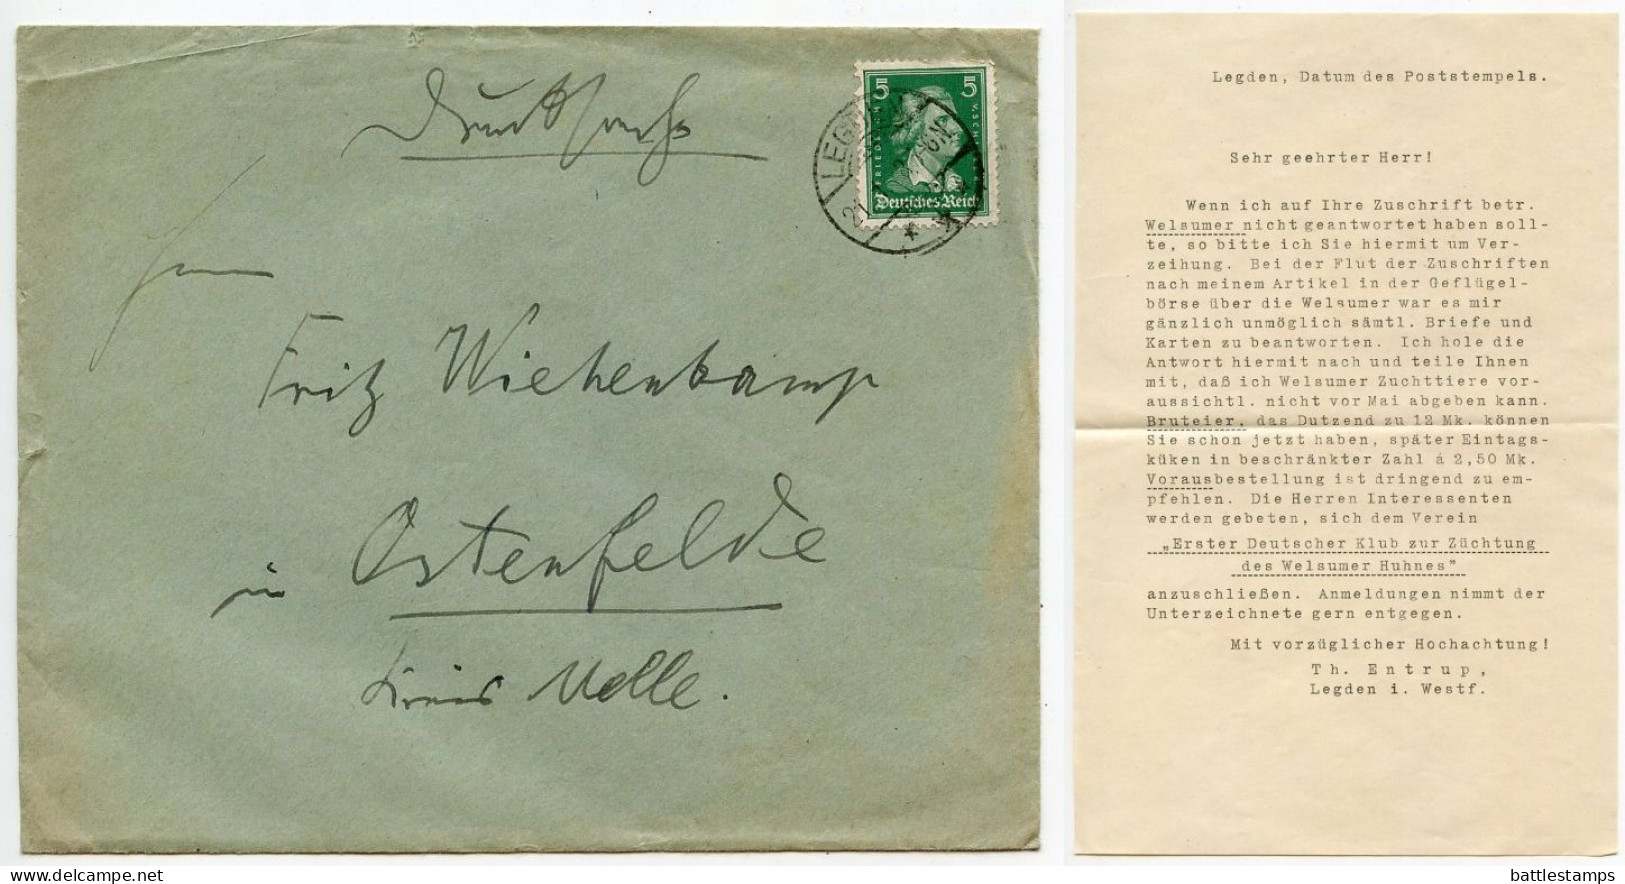 Drucksache
5 5
FRIEDRICH V. SCHILLER
Deutsches Reich
LEGDEN
Herrn
Fritz Wiehenkamp
in Ostenfelde
Kreis Melle.
Legden, Datum des Poststempels.
Sehr geehrter Herr!
Wenn ich auf Ihre Zuschrift betr.
Welsumer nicht geantwortet haben soll-
te, so bitte ich Sie hiermit um Ver-
zeihung. Bei der Flut der Zuschriften
nach meinem Artikel in der Geflügel-
börse über die Welsumer war es mir
gänzlich unmöglich sämtl. Briefe und
Karten zu beantworten. Ich hole die
Antwort hiermit nach und teile Ihnen
mit, daß ich Welsumer Zuchttiere vor-
aussichtl. nicht vor Mai abgeben kann.
Bruteier, das Dutzend zu 12 Mk. können
Sie schon jetzt haben, später Eintags-
küken in beschränkter Zahl á 2,50 Mk.
Vorausbestellung ist dringend zu em-
pfehlen. Die Herren Interessenten
werden gebeten, sich dem Verein
„Erster Deutscher Klub zur Züchtung
des Welsumer Huhnes”
anzuschließen. Anmeldungen nimmt der
Unterzeichnete gern entgegen.
Mit vorzüglicher Hochachtung!
Th. Entrup,
Legden i. Westf.
delcampe.net
battlestamps